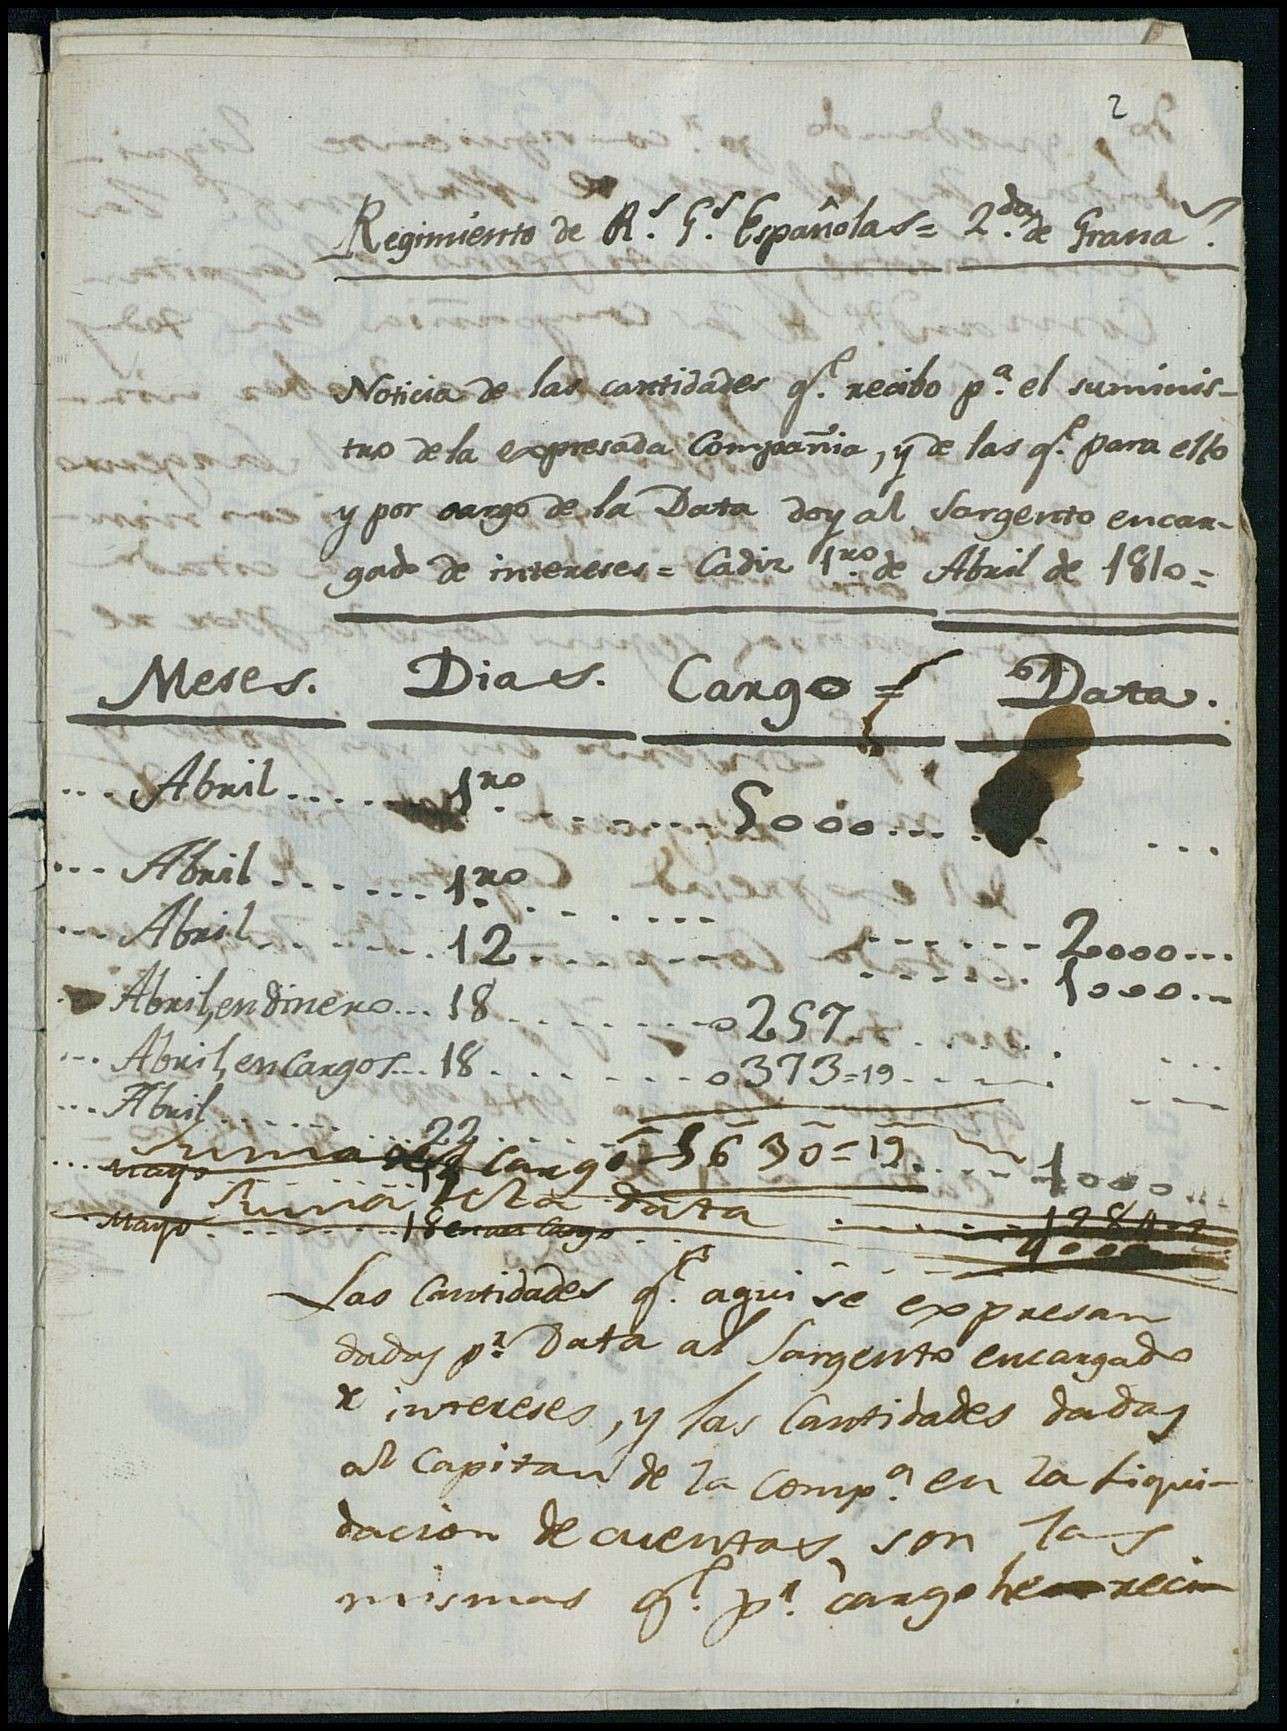 2
Regimiento de R.s G.s Españolas = 2.da de Granad.s
Noticia de las cantidades q.e recibo p.a el suminis-
tro de la expresada Compañia, y de las q.e para esto
y por cargo de la Data doy al Sargento encar-
gado de intereses = Cadiz 1.ro de Abril de 1810 =
Meses. Dias. Cargo = Data.
... Abril ....... 1.ro ........ 5000 ... ...
... Abril ....... 1.ro ........ ....... 2000 ...
... Abril ....... 12 ........ ....... 1000 ...
... Abril, en dinero ... 18 ........ 0257 ........ ...
... Abril, en cargos ... 18 ........ 0373=19 ..... ...
... Abril ........ 22 ........ 1000 ...
Suma el cargo 5630=19
... Mayo
Suma la data
Mayo ........ 18 en un cargo
Las Cantidades q.e aqui se expresan
dadas p.r Data al Sargento encargado
de intereses, y las Cantidades dadas
al Capitan de la Comp.a en la Liqui-
dacion de cuentas, son las
mismas q.e p.r cargo he reci-